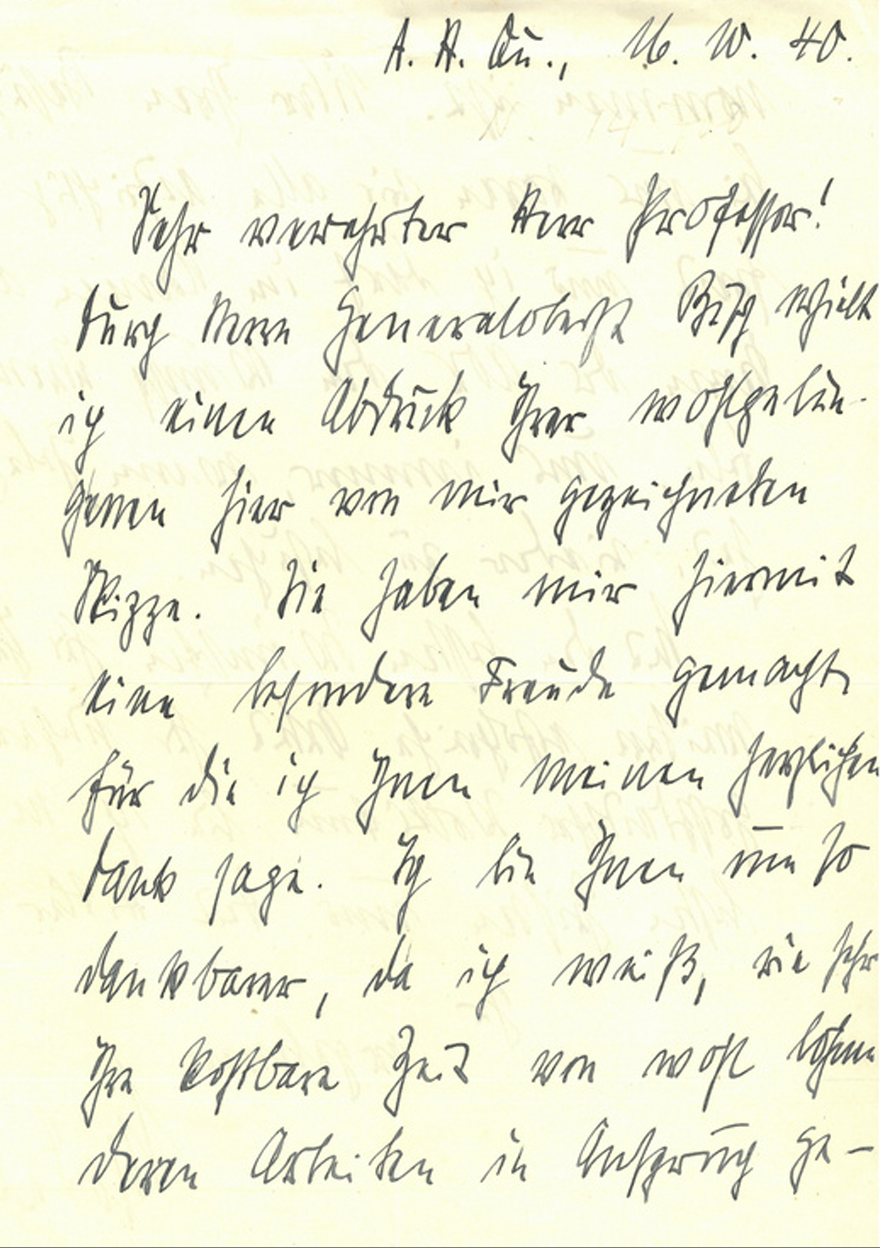 A. H. Qu., 16. 10. 40.
Sehr verehrter Herr Professor!
Durch Herrn Generaloberst Busch erhielt
ich einen Abdruck Ihrer wohlgelun-
genen hier von mir gezeichneten
Skizze. Sie haben mir hiermit
eine besondere Freude gemacht,
für die ich Ihnen meinen herzlichen
Dank sage. Ich bin Ihnen um so
dankbarer, da ich weiß, wie sehr
Ihre kostbare Zeit von wohl
deren Arbeiten in Anspruch ge-